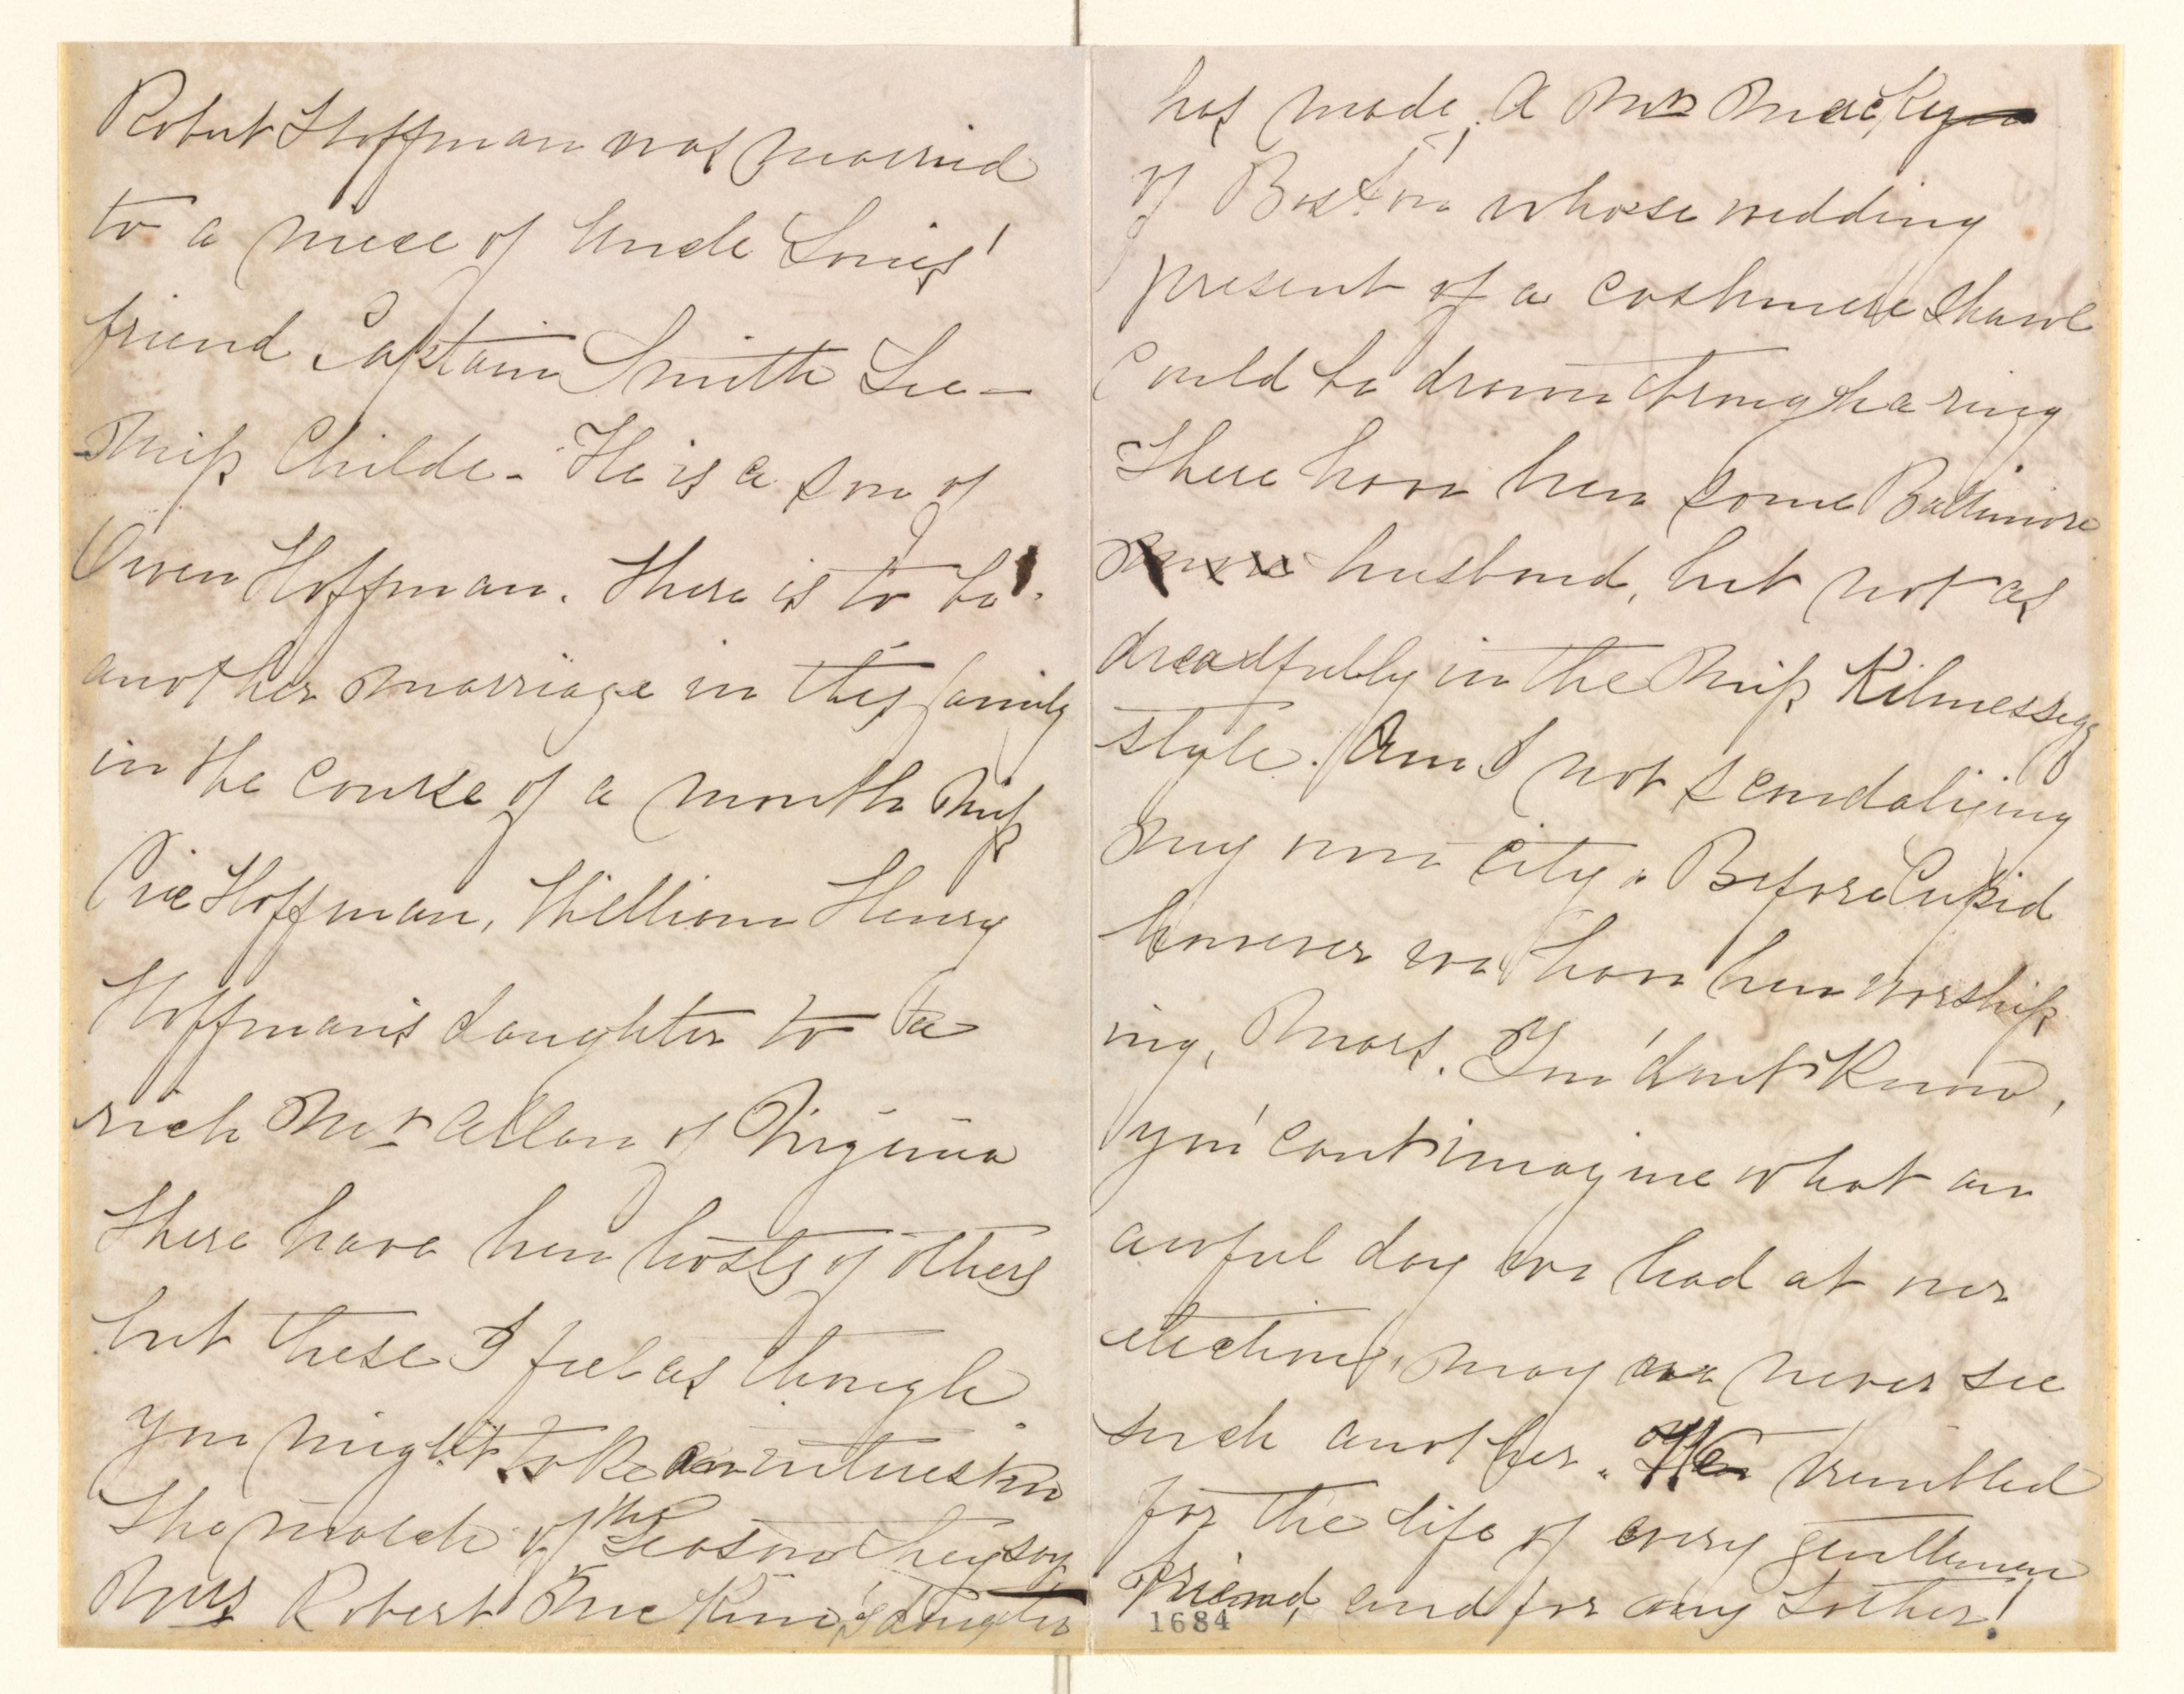 Robert Hoffman was married
to a niece of Uncle Louis'
friend Captain Smith Lee —
Miss Childe - He is a son of
Owen Hoffman. There is to be
another marriage in this family
in the course of a month Miss
Hoffman, William Henry
Hoffman's daughter to a
rich Mr Allan of Virginia
There have been hosts of others
but these I feel as though
you might take an interest in
The match of the Season they say
Mrs Robert McKim's daughter
has made, a Mr Mackey
of Boston whose wedding
present of a cashmere shawl
could be drawn through a ring
There have been some Baltimore
husband, but not as
dreadfully in the Miss Kilmessegg
style. Am I not scandalising
my own city. Before Cupid
however we have been worship
ing, Mars. You don't know,
you can't imagine what an
awful day we had at our
election, may we never see
such another. We trembled
for the life of every gentleman
friend, and for any Father!
1684